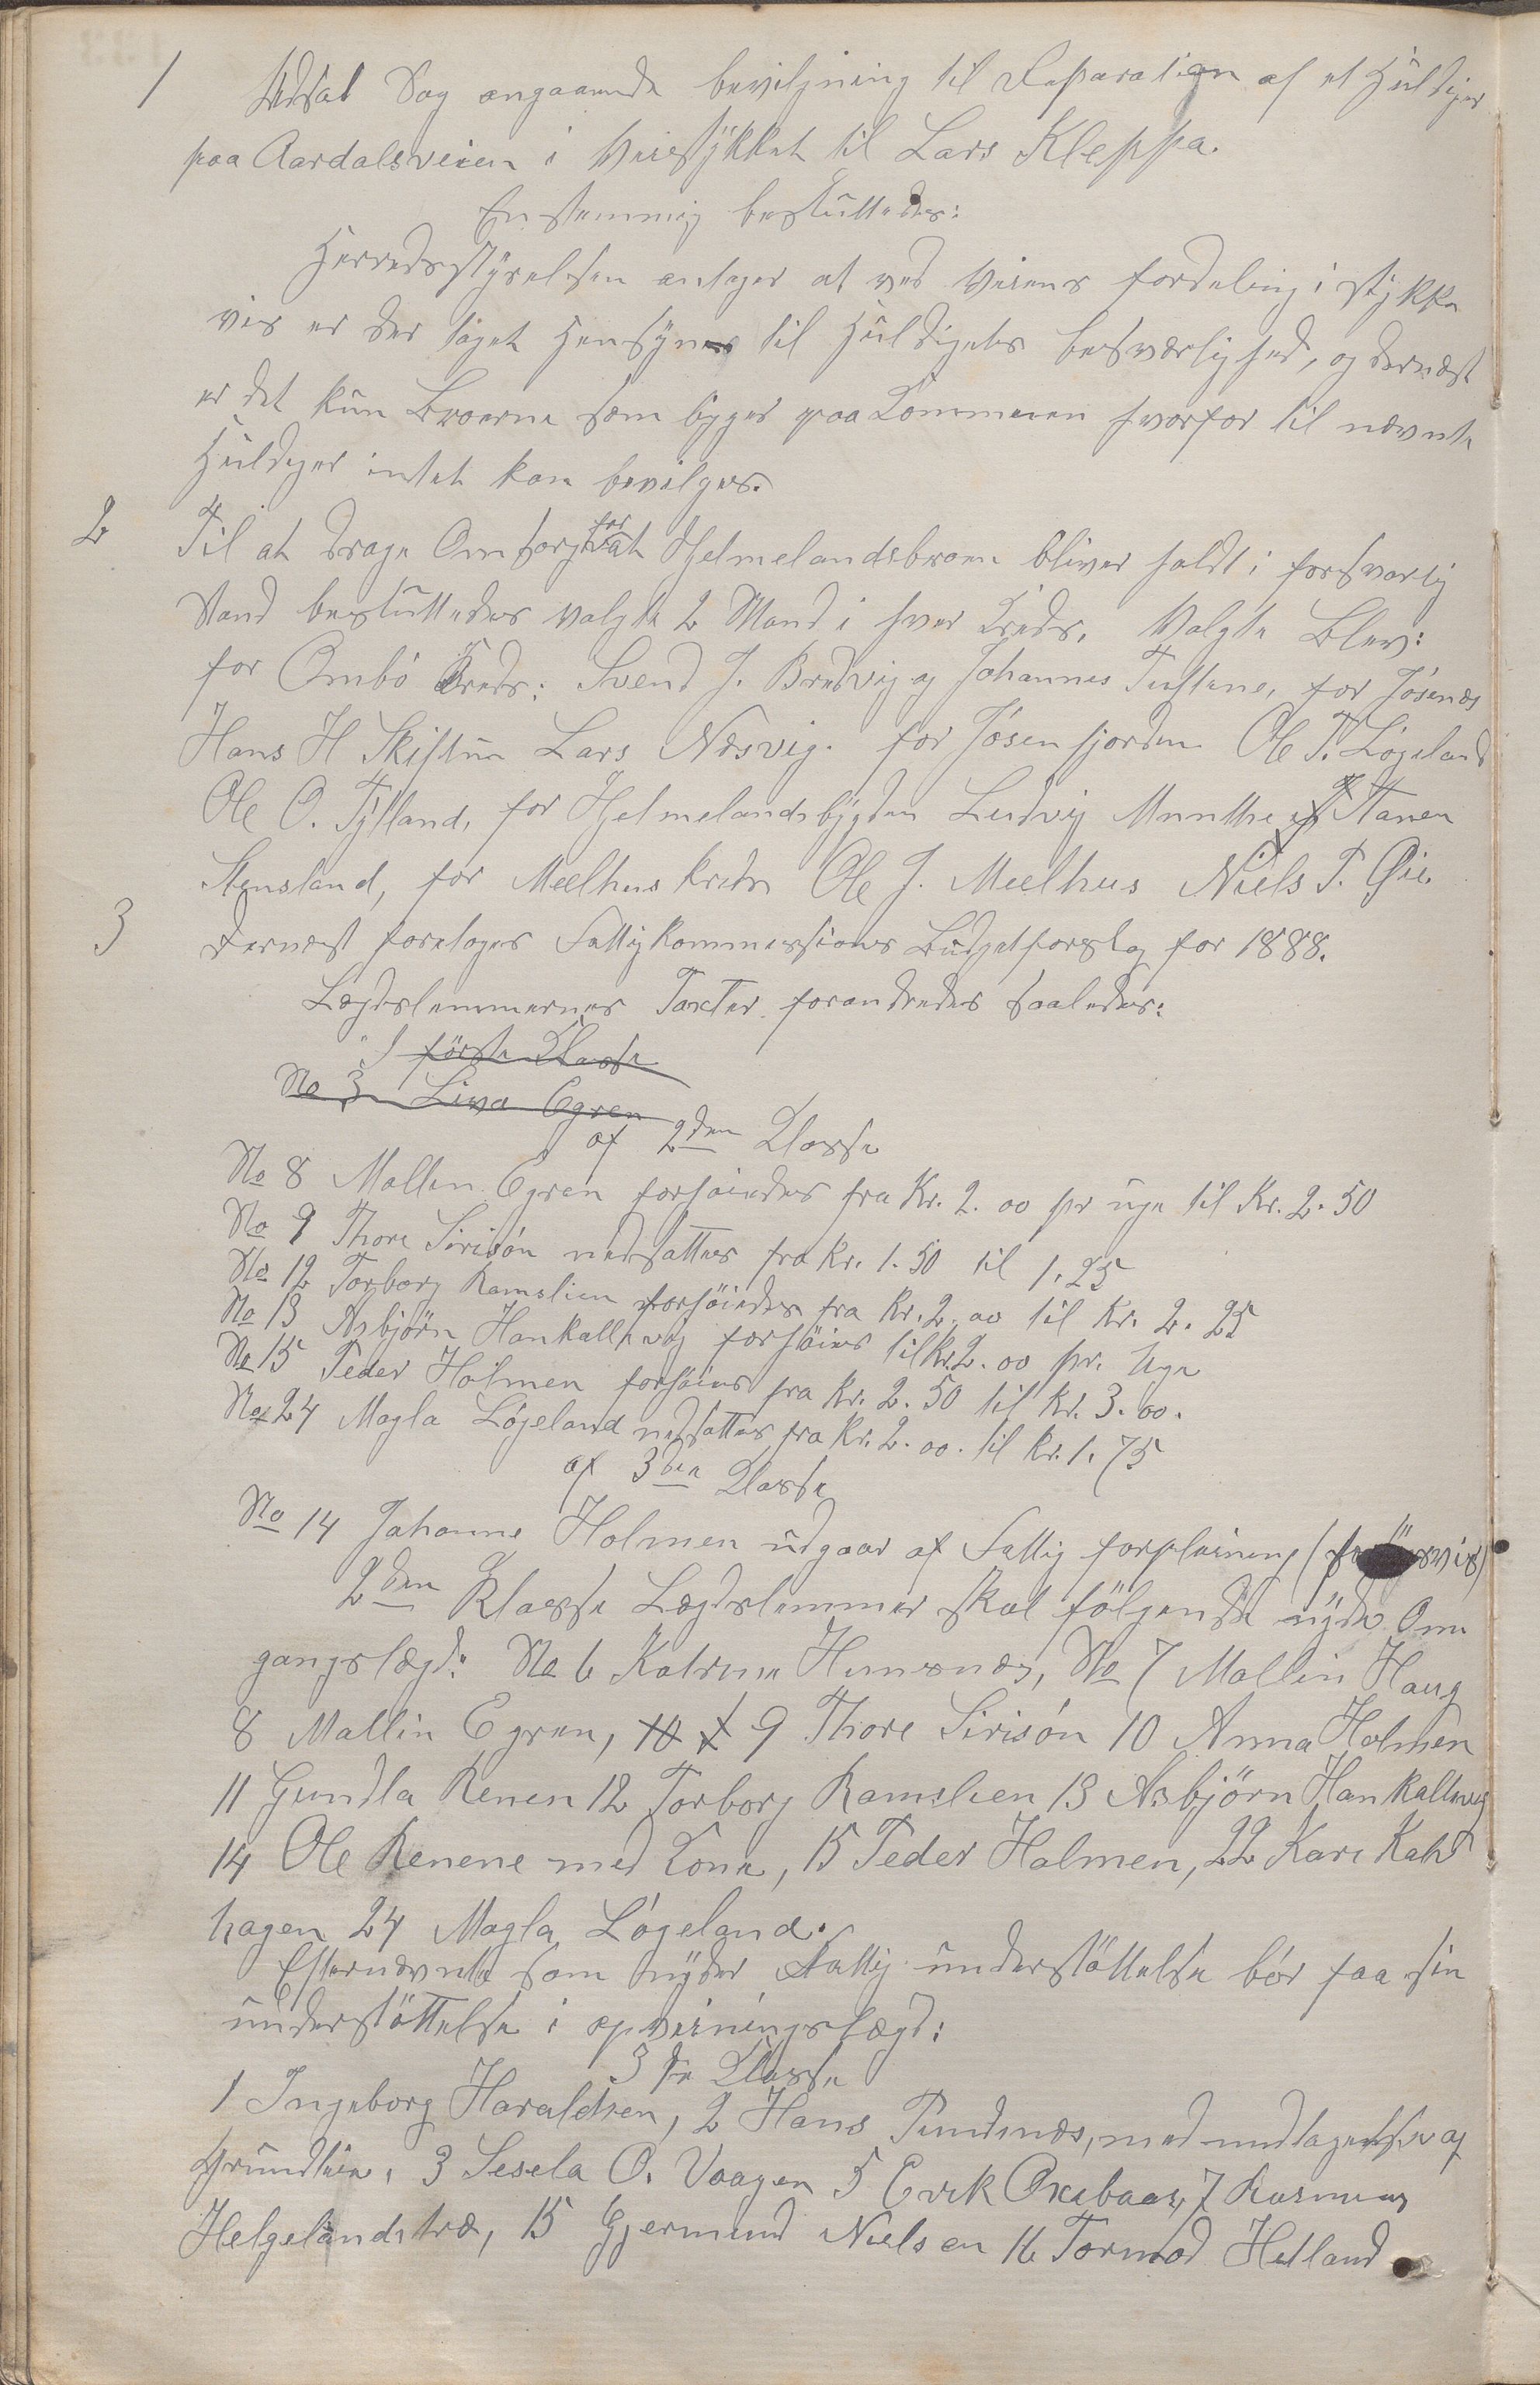 1 Udsat Sag angaaende bevilgning til Reparation af et Huldiger
paa Aardalsveien i Veistykket til Lars Kleppa.
Enstemmig besluttedes:
Herredsstyrelsen antager at ved Veiens fordeling i stykke
vis er der taget Hensyn til Huldigets besværlighed, og dernæst
er det kun Broerne som ligger paa Kommunen hvorfor til nævnte
Huldiger intet kan bevilges.
2 Til at drage Omsorg for at Hjelmelandsbroen bliver holdt i forsvarlig
Stand besluttedes valgte 2 Mand i hver Kreds. Valgte Blev:
for Ombö Kreds: Svend J. Bredvig og Johannes Tuftene, for Jösenæs
Hans H Skiftun Lars Næsvig. for Jösenfjorden Ole T. Lögeland
Ole O. Tytland, for Hjelmelandsbygden Ludvig Munthe og Hanen
Stensland, for Meelhus kreds Ole J. Meelhus Niels T. Øie.
3 Dernæst foretoges Fattigkommissions Budgetforslag for 1888.
Lægdslemmernes Taxter forandredes saaledes:
I förste Klasse
No 3 Liva Egren
af 2den Klasse
No 8 Mallin Egren forhöiedes fra Kr. 2.00 pr uge til Kr. 2.50
No 9 Thore Sirisön nedsattes fra Kr. 1.50 til 1.25
No 12 Torborg Ramslien forhöiedes fra Kr. 2.00 til Kr. 2.25
No 13 Asbjörn Hankallevig forhöies til Kr. 2.00 pr. Uge
No 15 Peder Holmen forhöies fra Kr. 2.50 til Kr. 3.00.
No 24 Magla Lögeland nedsattes fra Kr. 2.00. til Kr. 1.75
af 3die Klasse
No 14 Johanne Holmen udgaar af Fattig forpleining
2den Klasse Lægdslemmer skal fölgende nyde Om
gangslægd: No 6 Katrine Humsnæs, No 7 Mallin Haug
8 Mallin Egren, 10 9 Thore Sirisön 10 Anna Holmen
11 Gundla Renen 12 Torborg Ramslien 13 Asbjörn Hankallevig
14 Ole Renene med Kone, 15 Peder Holmen, 22 Kari Kalv
hagen 24 Magla Lögeland.
Efternævnte som nyder Fattig understöttelse bör faa sin
understöttelse i opveiningslægd:
3die Klasse
1 Ingeborg Haraldsen, 2 Hans Pundsnæs, med undtagelse af
Grundleie, 3 Sesela O. Vaagen 5 Erik Oxebaas, 7 Rasmus
Helgelandstræ, 15 Gjermund Nielsen 16 Tormod Hetland